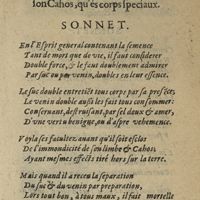 son Cahos, qu'és corps speciaux.
SONNET.
En l'Esprit general contenant la semence
Tant de mort que de vie, il faut considerer
Double force, & le faut doublement admirer
Par suc ou par venin, doubles en leur essence.
Le suc double entretiẽt tous corps par sa presẽce,
Le venin double aussi les fait tous consommer:
Conservant, destruisant, par sel doux & amer,
D'une vertu benigne, ou d'aspre vehemence.
Voyla ses facultez avant qu'il soit esclos
De l'immondicité de son limbe & Cahos,
Ayant mesmes effects tiré hors sur la terre.
Mais quand il a receu la separation
Du suc & du venin par preparation,
Lors tout bon, à tous maux, il fait mortelle